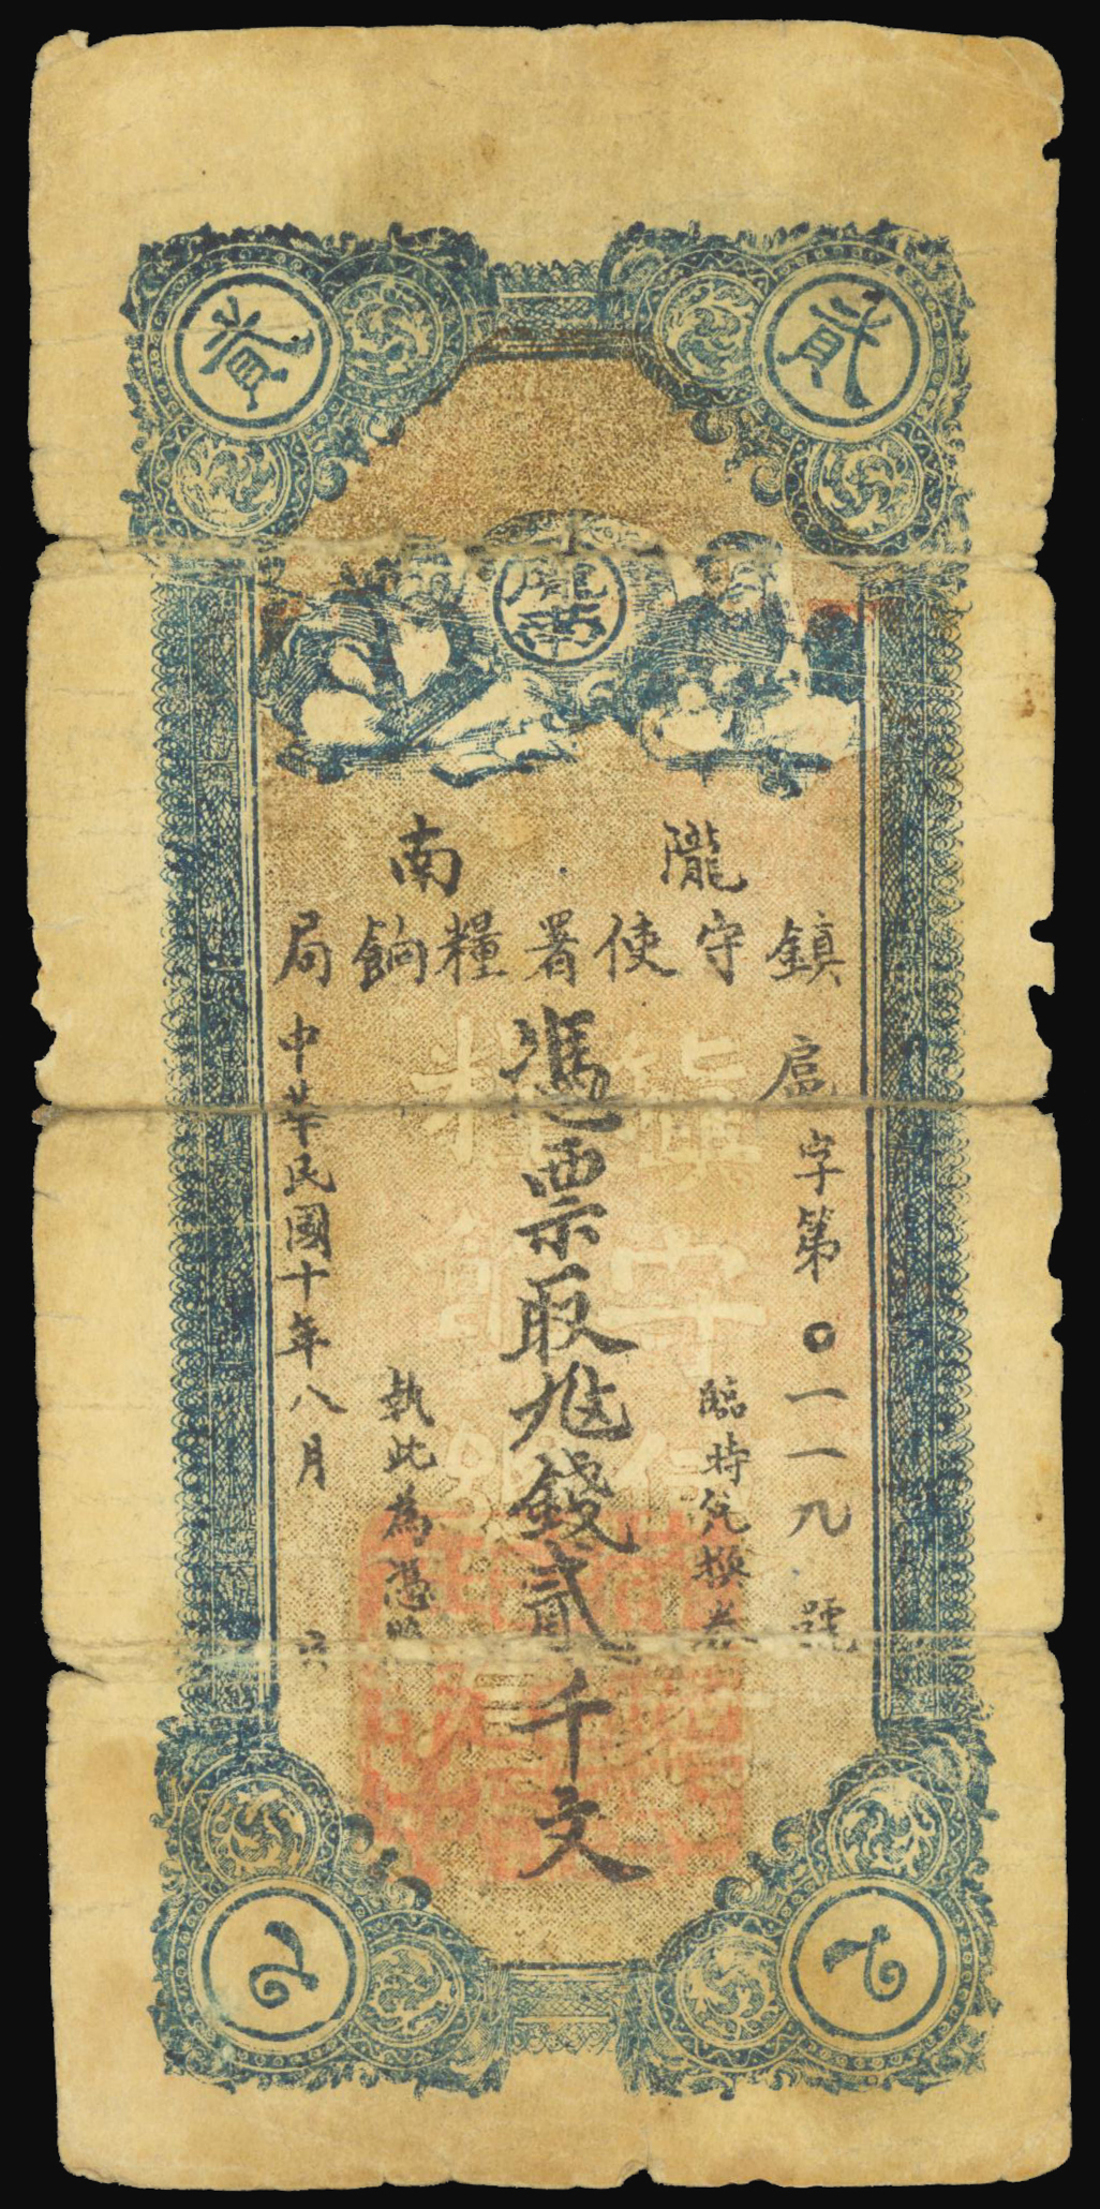 貳
隴南
隴南
鎮守使署糧餉局
字第〇一一九號
臨時兌換券
憑票取
錢貳千文
執此為憑
中華民國十年八月